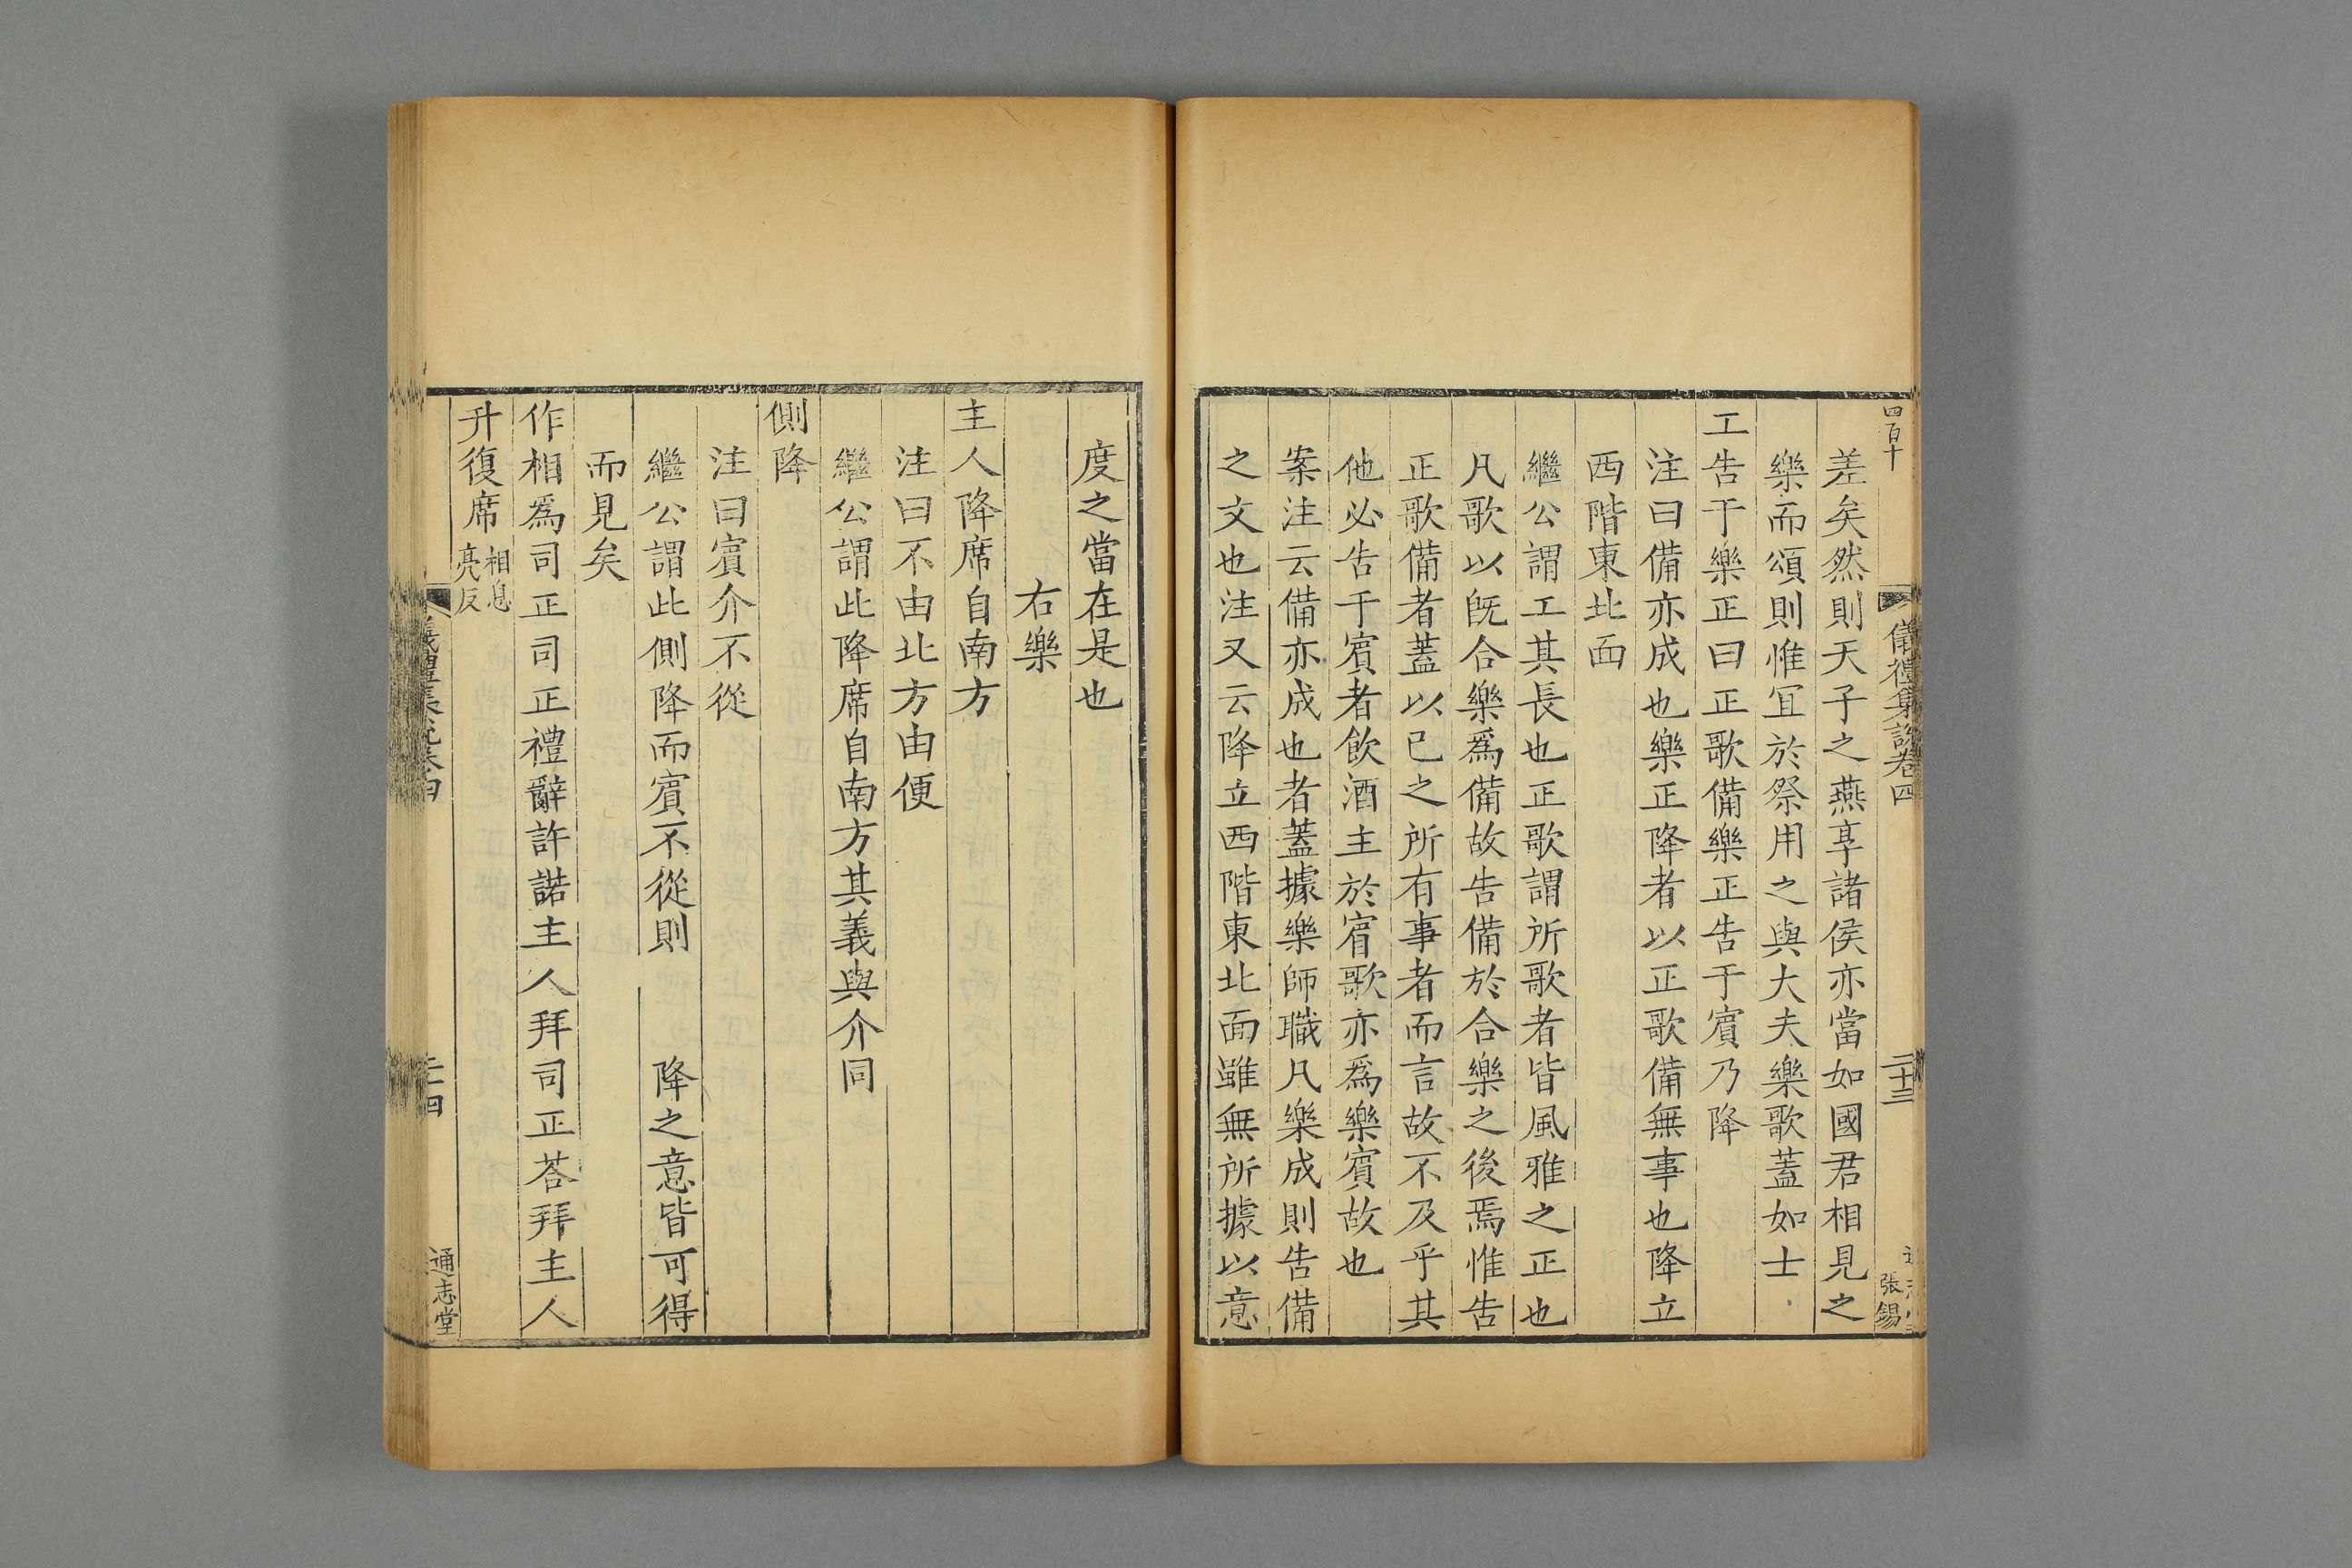 四百十
儀禮集說卷四
二十三
張錫
差矣然則天子之燕享諸侯亦當如國君相見之
樂而頌則惟冝於祭用之與大夫樂歌蓋如士
工告于樂正曰正歌備樂正告于賓乃降
注曰備亦成也樂正降者以正歌備無事也降立
西階東北面
繼公謂工其長也正歌謂所歌者皆風雅之正也
凡歌以旣合樂爲備故告備於合樂之後焉惟告
正歌備者蓋以已之所有事者而言故不及乎其
他必告于賓者飲酒主於賓歌亦爲樂賓故也
案注云備亦成也者蓋據樂師職凡樂成則告備
之文也注又云降立西階東北面雖無所據以意
度之當在是也
右樂
主人降席自南方
注曰不由北方由便
繼公謂此降席自南方其義與介同
側降
注曰賓介不從
繼公謂此側降而賓不從則 降之意皆可得
而見矣
作相爲司正司正禮辭許諾主人拜司正荅拜主人
升復席相息亮反
儀禮集說卷四
二十四
通志堂